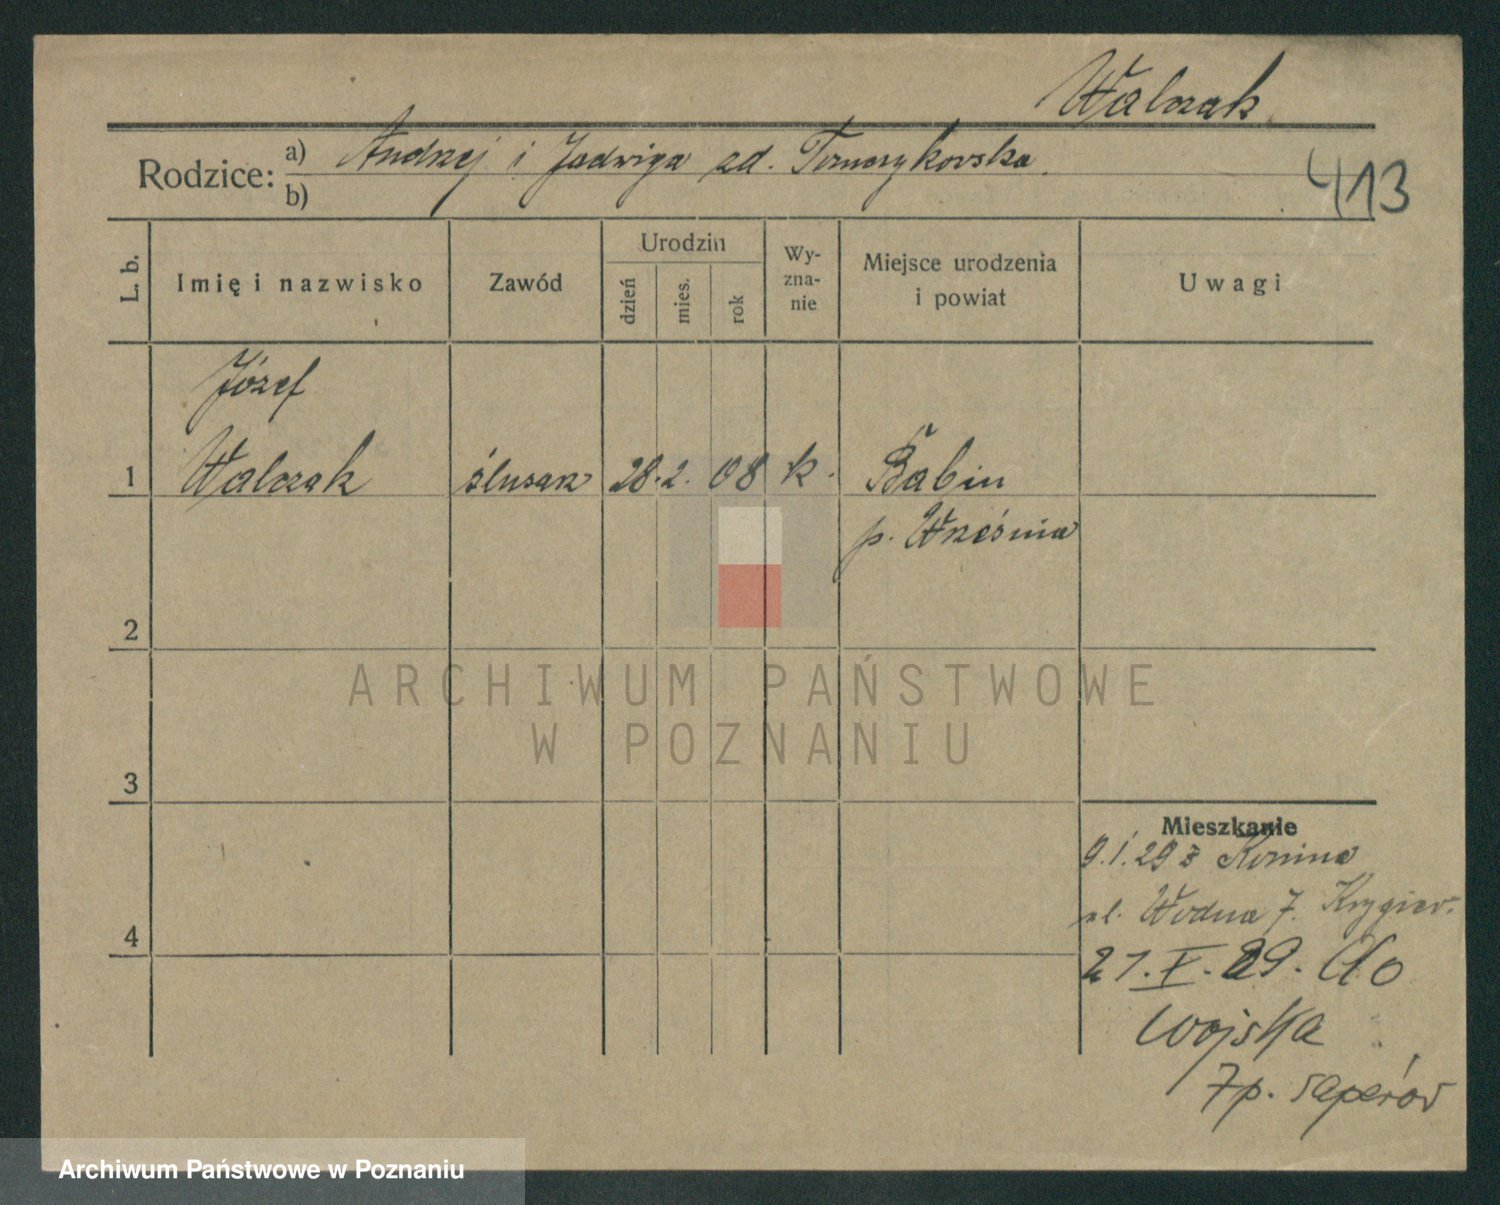 Walczak
Rodzice: a) Andrzej i Jadwiga zd.
b)
413
L. b.
Imię i nazwisko
Zawód
Urodzin
dzień
mies.
rok
Wy-
zna-
nie
Miejsce urodzenia
i powiat
Uwagi
Józef
1 Walczak ślusarz 28. 2. 08 k. Babin
p. Września
2
3
4
Mieszkanie
9.1.29 z Konina
ul. Wodna 7. Krygier.
21.V.29. do
wojska
7 p. saperów
ARCHIWUM PAŃSTWOWE
W POZNANIU
Archiwum Państwowe w Poznaniu